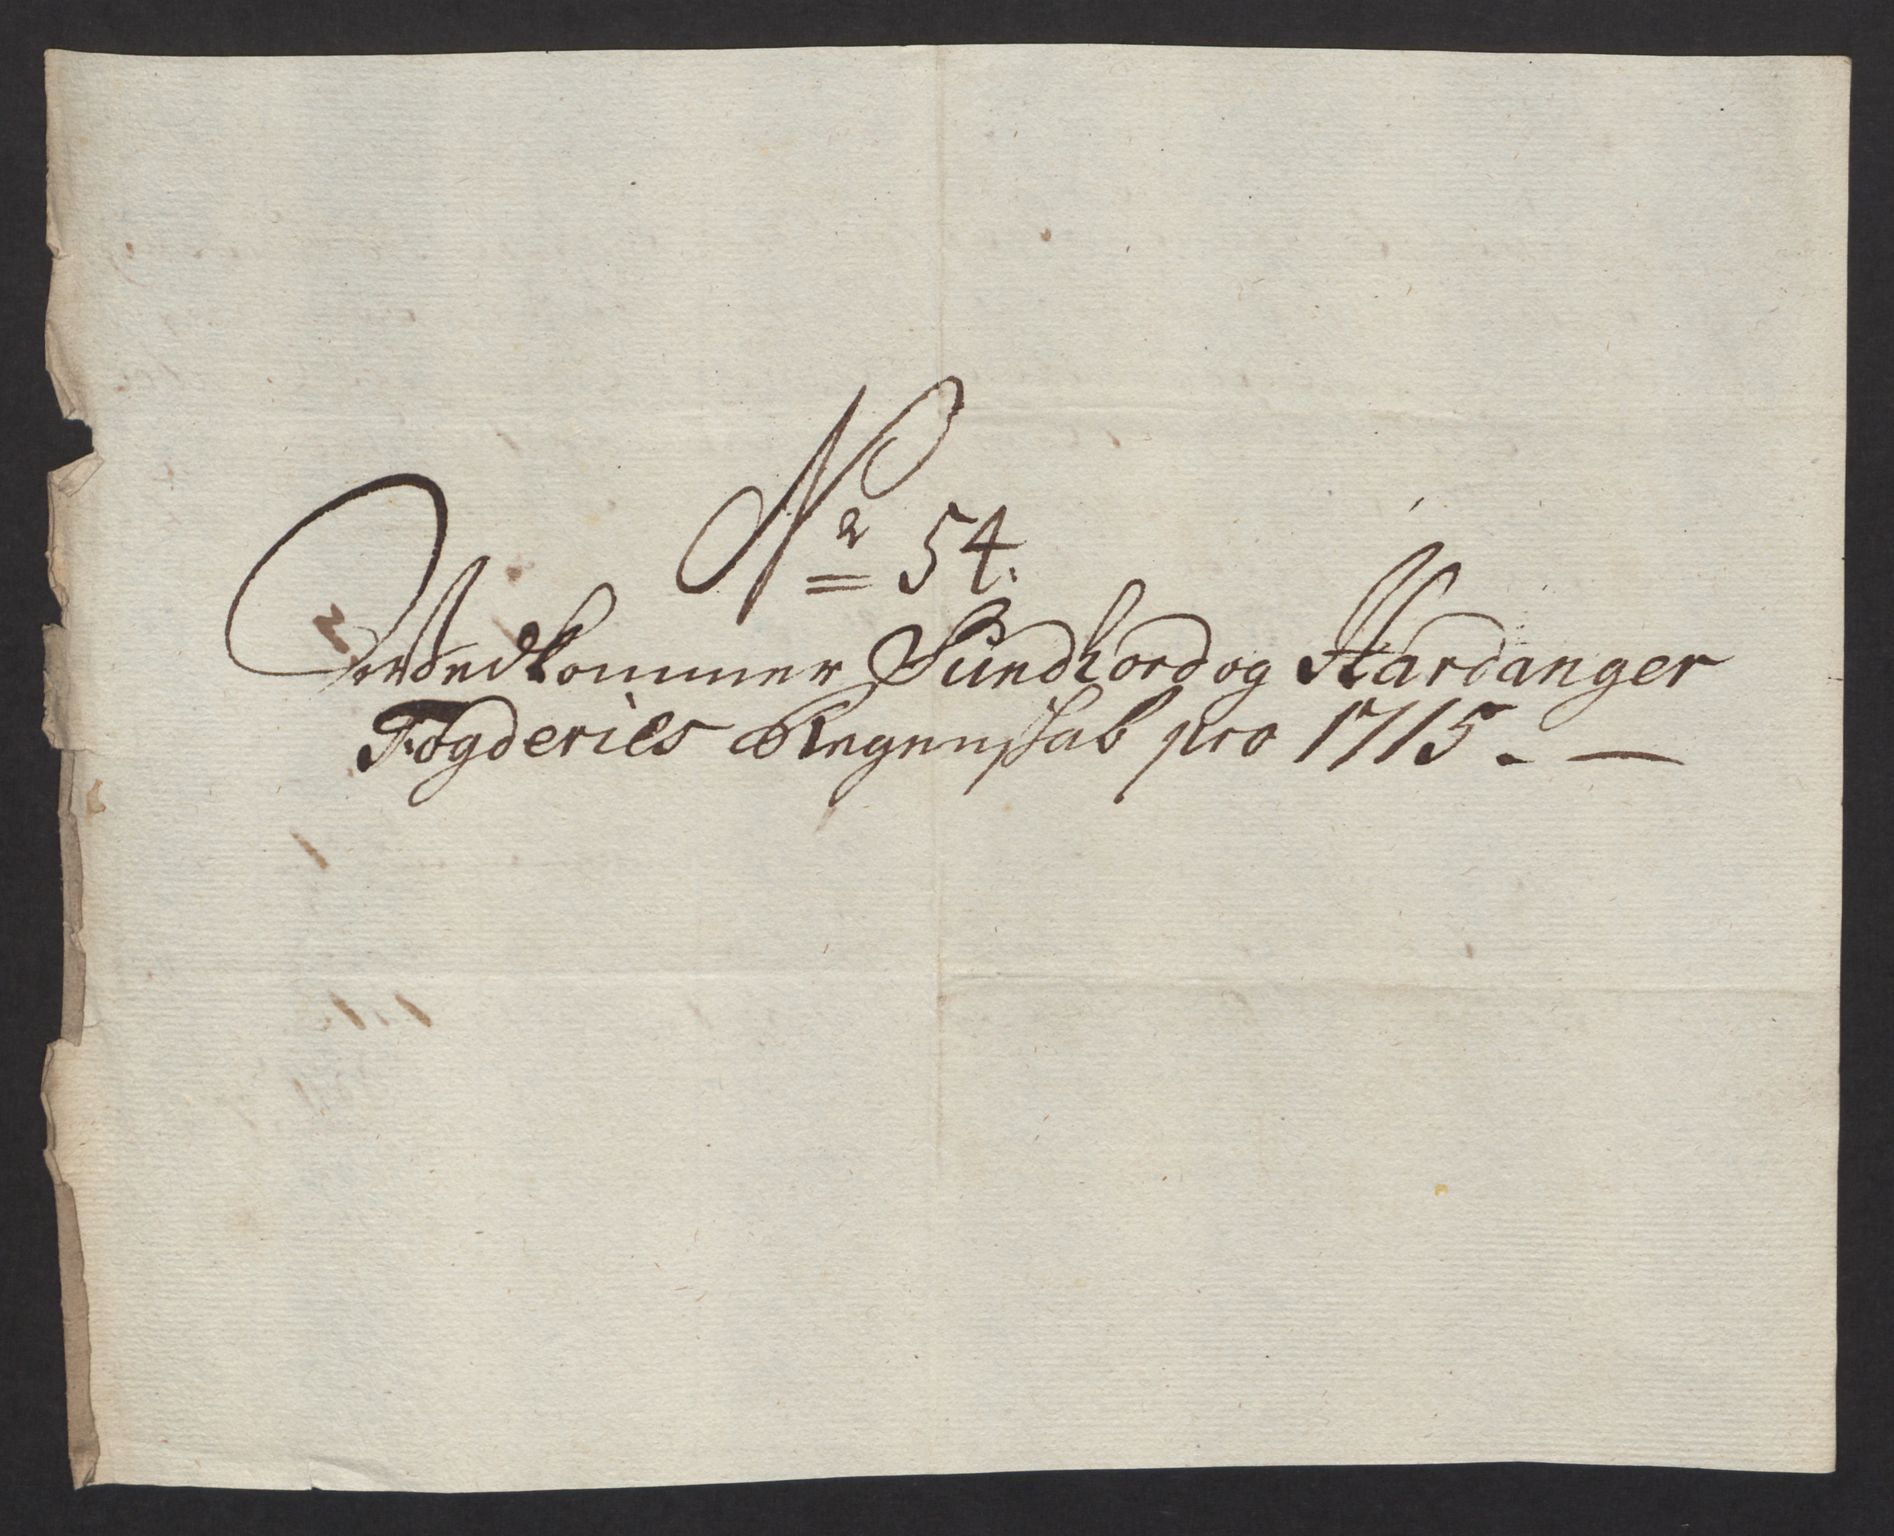 No 54.
Vedkommer Sundhord og Hardanger
Fogderies Regenskab pro 1715. —